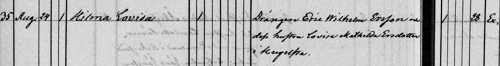 35 Aug. 24 1 Hilma Lovisa 1 Drängen Eric Wilhelm Ersson och 1 28 Ex.
dess hustru Lovisa Mathilda Ersdotter
i